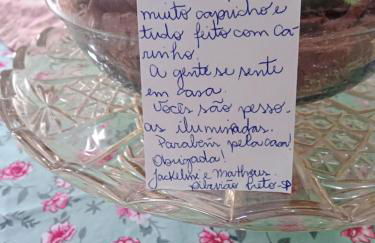 muito capricho e
tudo feito com ca-
rinho.
A gente se sente
em casa.
Vocês são pesso-
as iluminadas.
Parabéns pela casa!
Obrigada!
Jackeline e Matheus.
Ribeirão Preto-SP